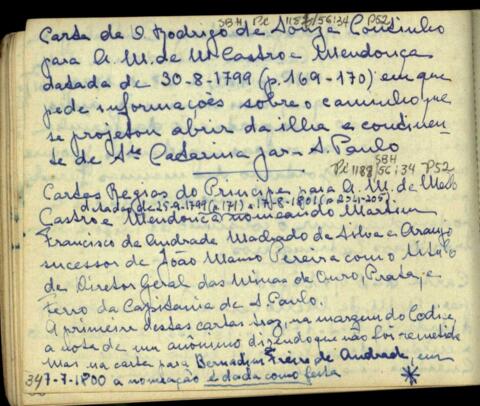 SBH Pc 1188/56:34 P52
Carta de D Rodrigo de Souza Coutinho
para A. M. de M. Castro e Mendonça
datada de 30-8-1799 (p.169-170) em que
pede informações sobre o caminho que
se projetou abrir da ilha e continen-
te de Sta Catarina para S. Paulo
SBH
Pc 1188/56:34 P52
Cartas Regias do Principe, para A. M. de Mello
Castro e Mendonça nomeando Martim
datadas de 25-9-1799 (p.171) e 17-8-1801 (p.204-205).
Francisco de Andrade Machado da Silva e Araujo
sucessor de João Manso Pereira com o titulo
de Diretor Geral das Minas de Ouro, Prata, e
Ferro da Capitania de S. Paulo.
A primeira destas cartas traz, na margem do Codice,
a nota de um anônimo dizendo que não foi remetida
Mas na carta para Bernadim Freire de Andrade, em
34 7-7-1800 a nomeação é dada como feita *